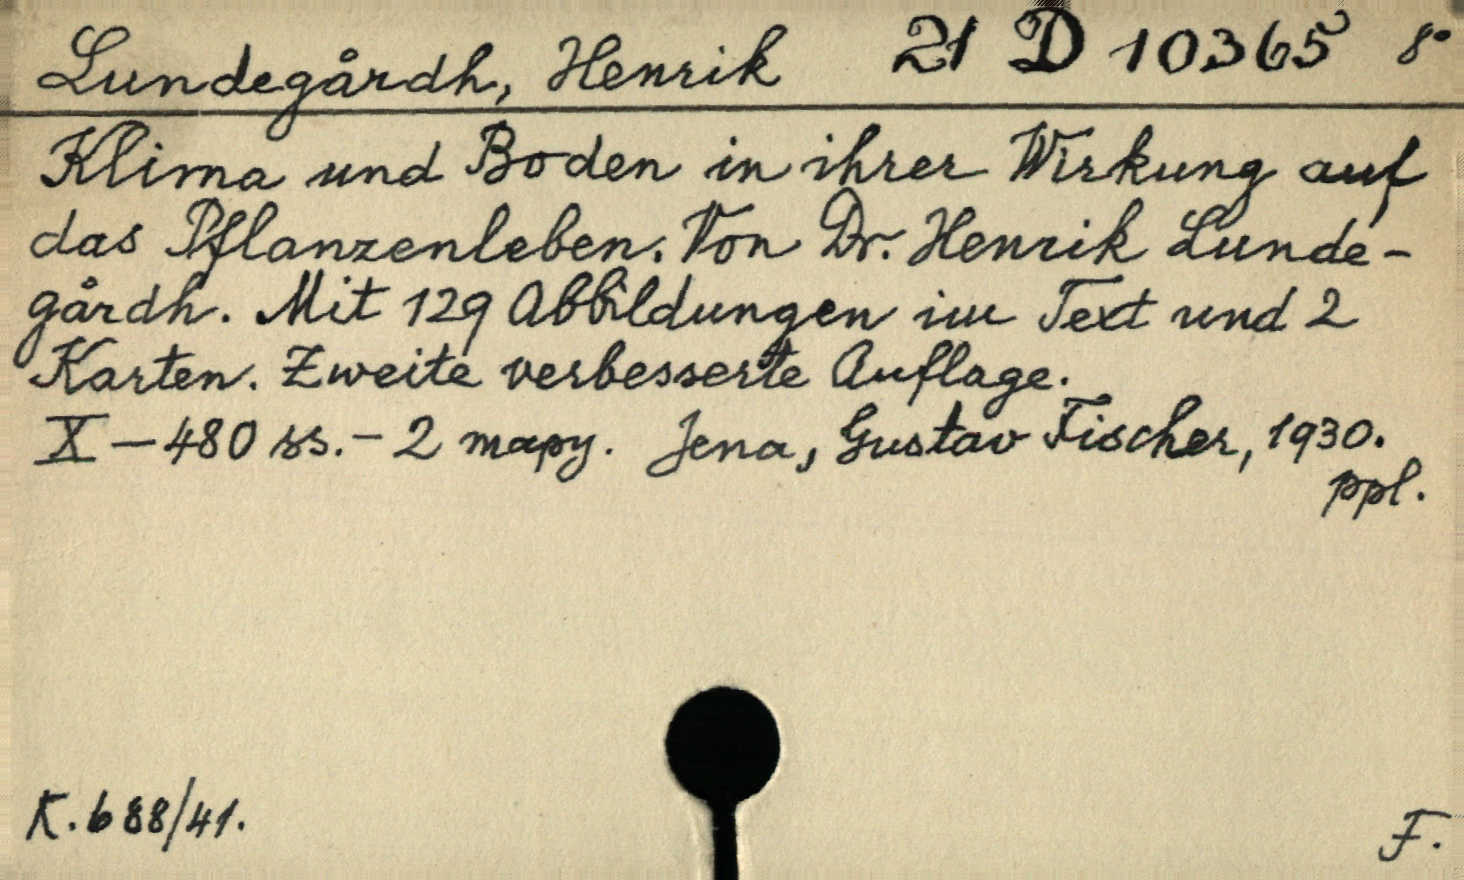 Lundegårdh, Henrik 21 D 10365 8°
Klima und Boden in ihrer Wirkung auf
das Pflanzenleben. Von Dr. Henrik Lunde-
gårdh. Mit 129 Abbildungen im Text und 2
Karten. Zweite verbesserte Auflage.
X — 480 ss. — 2 mapy. Jena, Gustav Fischer, 1930.
ppl.
K. 688/41.
F.